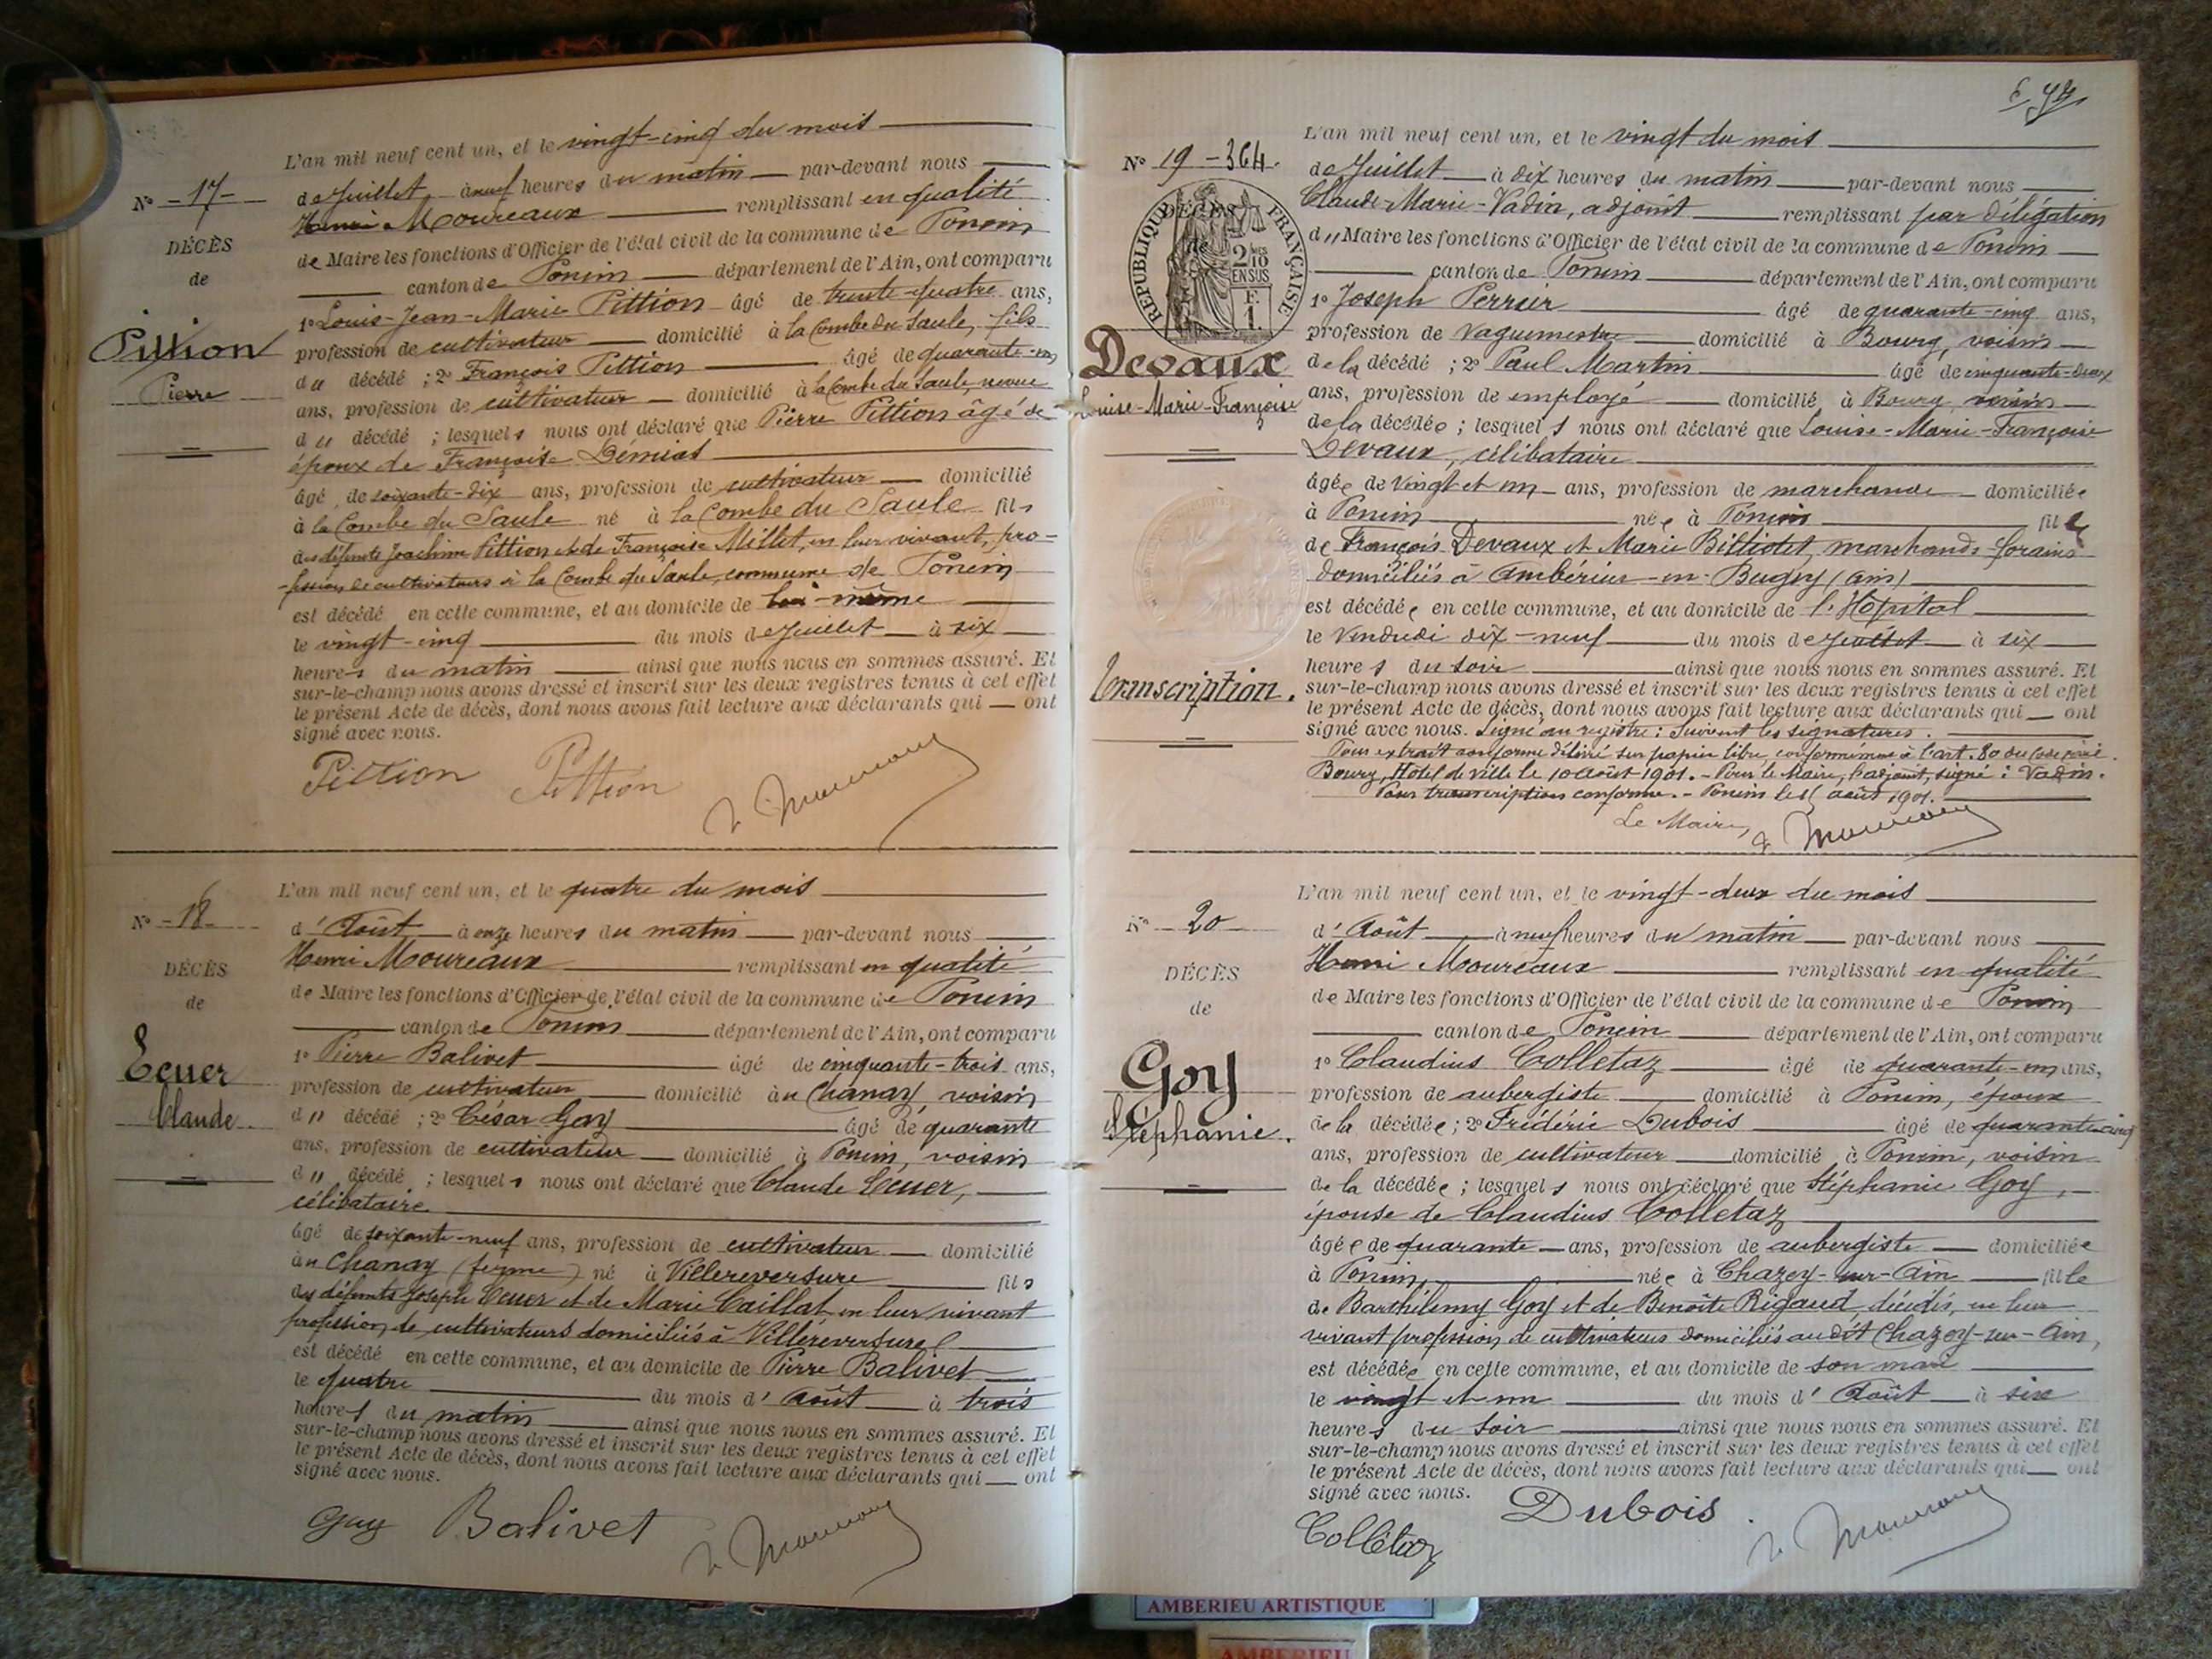 L'an mil neuf cent un, et le vingt-cinq du mois
N° - 17 -
de Juillet à neuf heures du matin par-devant nous
Henri Moureaux remplissant en qualité
DÉCÈS
de Maire les fonctions d'Officier de l'état civil de la commune de Poncin
de
canton de Poncin département de l'Ain, ont comparu
1° Louis-Jean-Marie Pittion âgé de trente-quatre ans,
Pittion
profession de cultivateur domicilié à la Combe du Saule, fils
du décédé ; 2° François Pittion âgé de quarante-un
Pierre
ans, profession de cultivateur domicilié à la Combe du Saule, neveu
du décédé ; lesquels nous ont déclaré que Pierre Pittion âgé de
époux de Françoise
âgé de soixante-dix ans, profession de cultivateur domicilié
à la Combe du Saule né à la Combe du Saule fils
des défunts Joachim Pittion et de Françoise Millet, en leur vivant, pro-
-fession de cultivateurs à la Combe du Saule, commune de Poncin
est décédé en cette commune, et au domicile de lui-même
le vingt-cinq du mois de Juillet à six
heures du matin ainsi que nous nous en sommes assuré. Et
sur-le-champ nous avons dressé et inscrit sur les deux registres tenus à cet effet
le présent Acte de décès, dont nous avons fait lecture aux déclarants qui ont
signé avec nous.
Pittion Pittion H. Moureaux
L'an mil neuf cent un, et le quatre du mois
N° - 18 -
d'Août à onze heures du matin par-devant nous
Henri Moureaux remplissant en qualité
DÉCÈS
de Maire les fonctions d'Officier de l'état civil de la commune de Poncin
de
canton de Poncin département de l'Ain, ont comparu
1° Pierre Balivet âgé de cinquante-trois ans,
Ecuer
profession de cultivateur domicilié au Chanay, voisin
Claude.
du décédé ; 2° César Goy âgé de quarante
ans, profession de cultivateur domicilié à Poncin, voisin
du décédé ; lesquels nous ont déclaré que Claude Ecuer,
célibataire
âgé de soixante-neuf ans, profession de cultivateur domicilié
au Chanay (ferme) né à Villereversure fils
des défunts Joseph Ecuer et de Marie Caillat en leur vivant
profession de cultivateurs domiciliés à Villereversure
est décédé en cette commune, et au domicile de Pierre Balivet
le quatre du mois d'Août à trois
heures du matin ainsi que nous nous en sommes assuré. Et
sur-le-champ nous avons dressé et inscrit sur les deux registres tenus à cet effet
le présent Acte de décès, dont nous avons fait lecture aux déclarants qui ont
signé avec nous.
Goy Balivet H. Moureaux
L'an mil neuf cent un, et le vingt du mois
N° 19 - 364.
de Juillet à dix heures du matin par-devant nous
Claude-Marie-Vadin, adjoint remplissant par délégation
DÉCÈS
de
RÉPUBLIQUE FRANÇAISE
2/10 EN SUS
F. 1.
du Maire les fonctions d'Officier de l'état civil de la commune de Poncin
canton de Poncin département de l'Ain, ont comparu
1° Joseph Perrier âgé de quarante-cinq ans,
profession de Vaguemestre domicilié à Bourg, voisin
Devaux
de la décédé ; 2° Paul Martin âgé de cinquante-deux
Louise-Marie-Françoise
ans, profession de employé domicilié à Bourg, voisin
de la décédée ; lesquels nous ont déclaré que Louise-Marie-Françoise
Devaux, célibataire
âgée de vingt et un ans, profession de marchande domiciliée
à Poncin née à Poncin fille
de François Devaux et Marie Billiotet, marchands-forains
domiciliés à Ambérieu-en-Bugey (Ain)
est décédée en cette commune, et au domicile de l'Hôpital
le Vendredi dix-neuf du mois de Juillet à six
heures du soir ainsi que nous nous en sommes assuré. Et
Transcription.
sur-le-champ nous avons dressé et inscrit sur les deux registres tenus à cet effet
le présent Acte de décès, dont nous avons fait lecture aux déclarants qui ont
signé avec nous. Signé au registre : Suivent les signatures.
Pour extrait conforme délivré sur papier libre conformément à l'art. 80 du Code civil.
Bourg, Hôtel de ville le 10 août 1901. - Pour le Maire, l'adjoint, signé : Vadin.
Pour transcription conforme. - Poncin le août 1901.
Le Maire, H. Moureaux
L'an mil neuf cent un, et le vingt-deux du mois
N° 20
d'Août à neuf heures du matin par-devant nous
Henri Moureaux remplissant en qualité
DÉCÈS
de Maire les fonctions d'Officier de l'état civil de la commune de Poncin
de
canton de Poncin département de l'Ain, ont comparu
1° Claudius Colletaz âgé de quarante-un ans,
Goy
profession de aubergiste domicilié à Poncin, époux
Stéphanie.
de la décédée ; 2° Frédéric Dubois âgé de quarante-cinq
ans, profession de cultivateur domicilié à Poncin, voisin
de la décédée ; lesquels nous ont déclaré que Stéphanie Goy,
épouse de Claudius Colletaz
âgée de quarante ans, profession de aubergiste domiciliée
à Poncin, née à Chazey-sur-Ain fille
de Barthélemy Goy et de Benoîte Rigaud, décédés, en leur
vivant profession de cultivateurs domiciliés au dit Chazey-sur-Ain,
est décédée en cette commune, et au domicile de son mari
le vingt et un du mois d'Août à six
heures du soir ainsi que nous nous en sommes assuré. Et
sur-le-champ nous avons dressé et inscrit sur les deux registres tenus à cet effet
le présent Acte de décès, dont nous avons fait lecture aux déclarants qui ont
signé avec nous.
Colletaz Dubois. H. Moureaux
AMBERIEU ARTISTIQUE
AMBERIEU